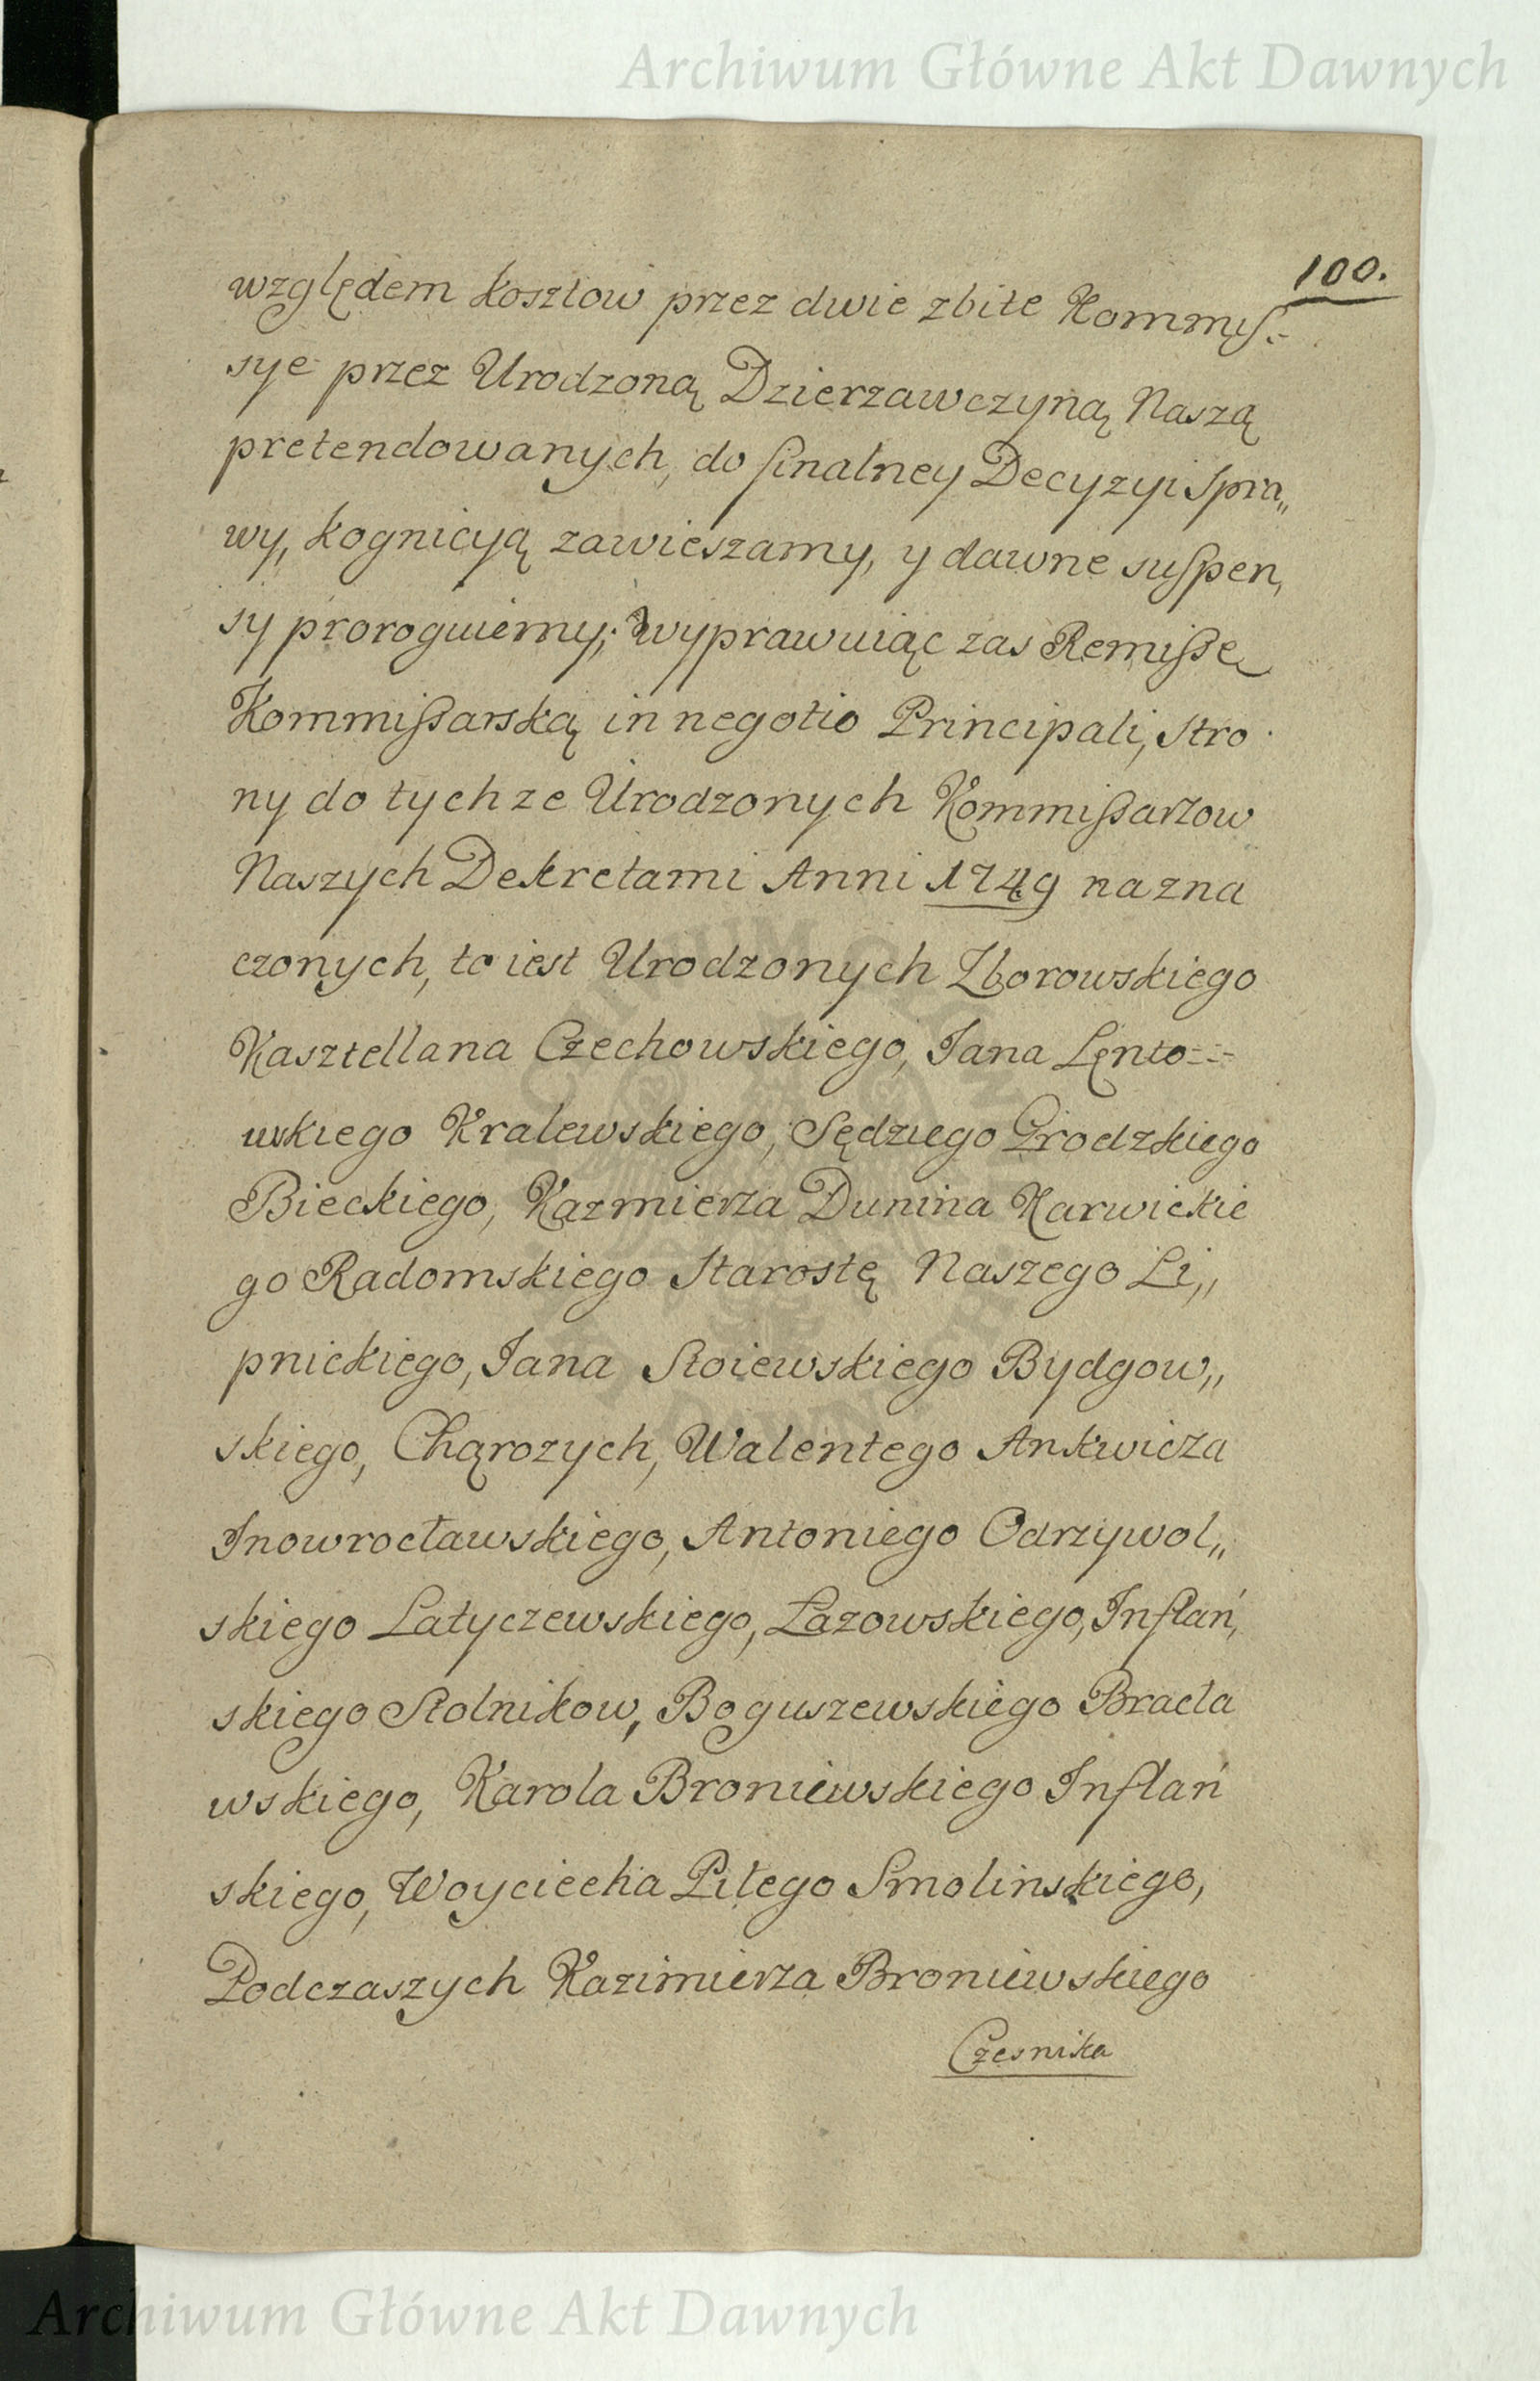 Archiwum Główne Akt Dawnych
100.
względem kosztow przez dwie zbite Kommiſ:-
sye przez Urodzoną Dzierzawczyną Naszą
pretendowanych, do finalney Decyzyi Spra„
wy, kognicyą zawieszamy, y dawne suſpen,
sy proroguiemy; wyprawuiąc zas Remiſse
Kommiſsarską in negotio Principali, Stro
ny do tychze Urodzonych Kommiſsarzow
Naszych Dekretami Anni 1749 nazna
czonych, to iest Urodzonych Zborowskiego
Kasztellana Czechowskiego, Jana Lento=:-
wskiego Kralewskiego, Sędziego Grodzkiego
Bieckiego, Kazmierza Dunina Karwickie
go Radomskiego Starostę Naszego Li„
pnickiego, Jana Stoiewskiego Bydgow„
skiego, Chąrozych, Walentego Ankwicza
Inowrocławskiego, Antoniego Odrzywol„
skiego Latyczewskiego, Łazowskiego, Inflań,
skiego Stolnikow, Boguszewskiego Bracła
wskiego, Karola Broniewskiego Inflań
skiego, Woyciecha Pitego Smolinskiego,
Podczaszych Kazimierza Broniewskiego
Czesnika
Archiwum Główne Akt Dawnych